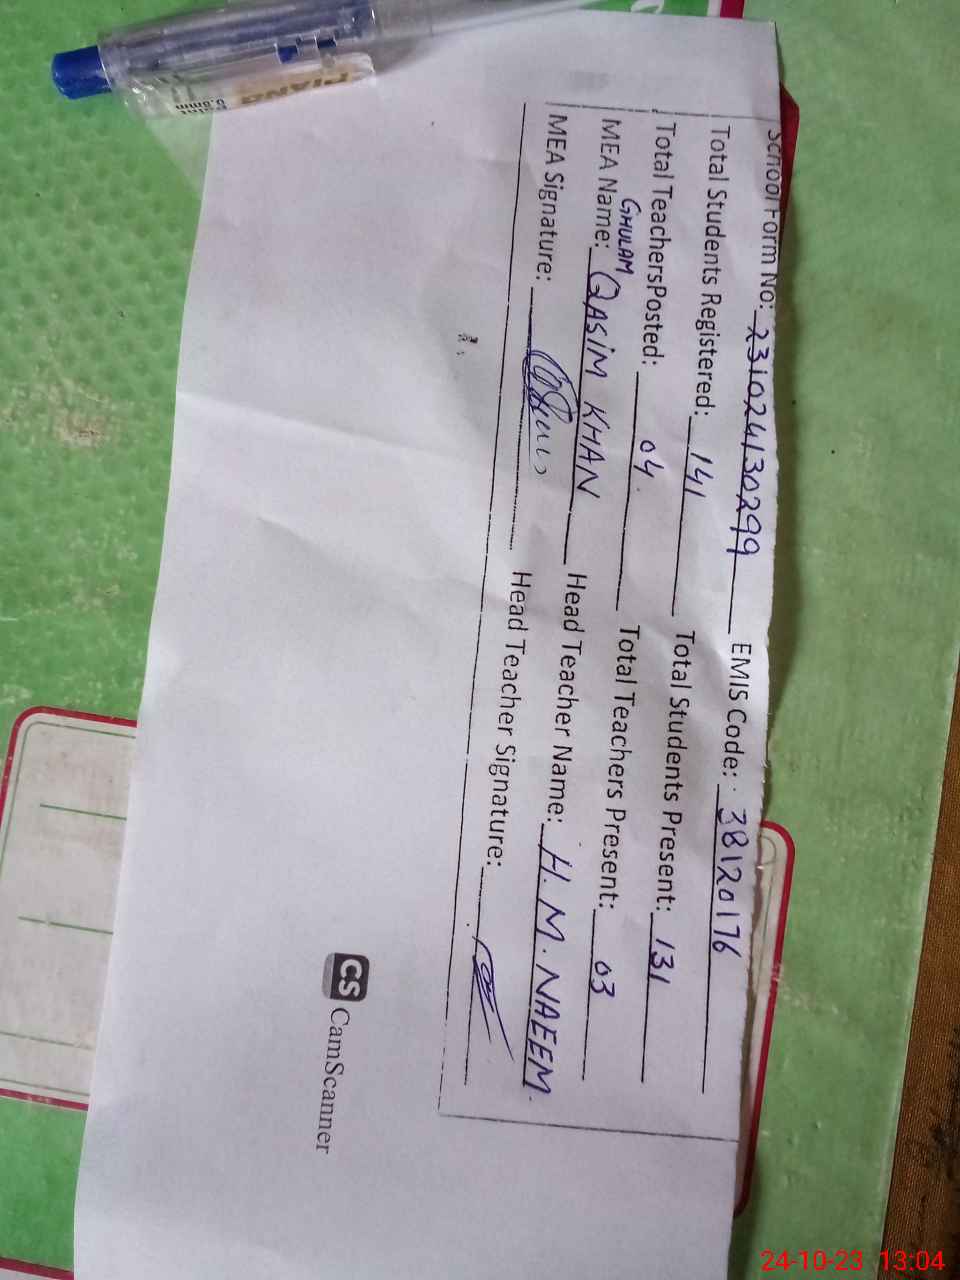 School Form No: 231024130299 EMIS Code: 38120176
Total Students Registered: 141 Total Students Present: 131
Total TeachersPosted: 04 Total Teachers Present: 03
GHULAM
MEA Name: QASIM KHAN Head Teacher Name: H. M. NAEEM.
MEA Signature: Head Teacher Signature:
CS CamScanner
PIANO
Point
0.8mm
24-10-23 13:04